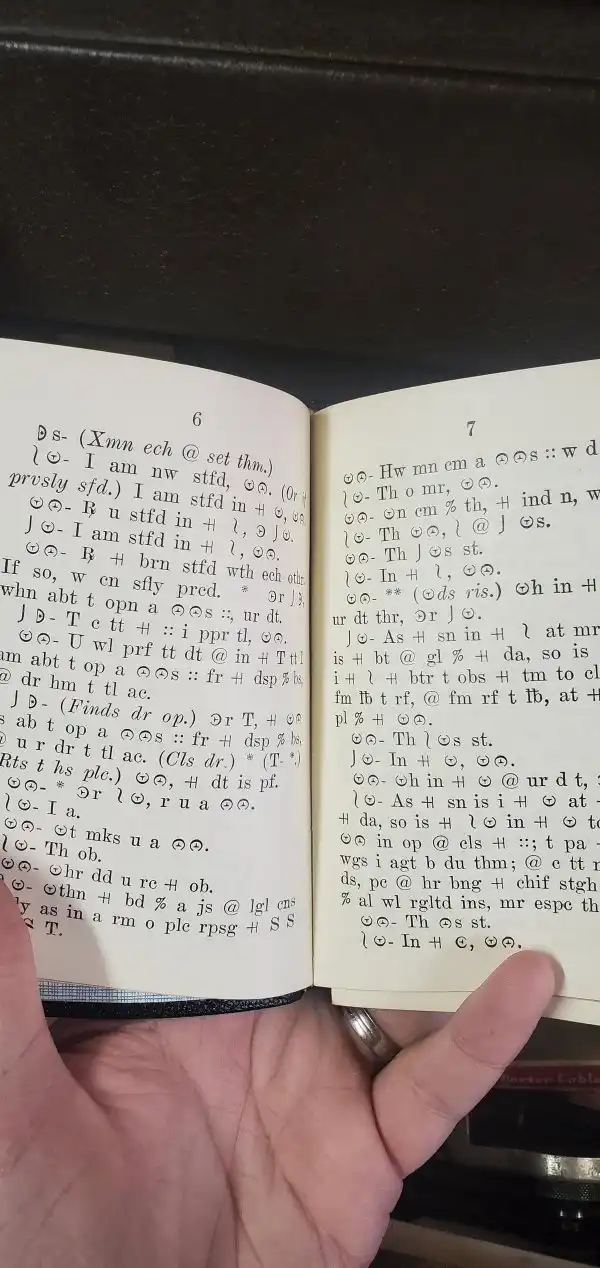 6
s- (Xmn ech @ set thm.)
⅂ ☉- I am nw stfd, ☉☉. (Or
prvsly sfd.) I am stfd in ⵌ ☉, ☉☉.
☉☉- ꝶ u stfd in ⵌ ⅂, Э J ☉.
J ☉- I am stfd in ⵌ ⅂, ☉☉.
☉☉- ꝶ ⵌ brn stfd wth ech othr.
If so, w cn sfly prcd. * Эr J Э,
whn abt t opn a ☉☉s ::, ur dt.
J Э- T c tt ⵌ :: i ppr tl, ☉☉.
☉☉- U wl prf tt dt @ in ⵌ T tt I
am abt t op a ☉☉s :: fr ⵌ dsp % bs,
@ dr hm t tl ac.
J Э- (Finds dr op.) Эr T, ⵌ ☉☉
s ab t op a ☉☉s :: fr ⵌ dsp % bs,
@ u r dr t tl ac. (Cls dr.) * (T- *.)
Rts t hs plc.) ☉☉, ⵌ dt is pf.
☉☉- * Эr ⅂ ☉, r u a ☉☉.
⅂ ☉- I a.
☉☉- ☉t mks u a ☉☉.
⅂ ☉- Th ob.
☉☉- ☉hr dd u rc ⵌ ob.
☉- ☉thn ⵌ bd % a js @ lgl cns
ly as in a rm o plc rpsg ⵌ S S
S T.
7
☉☉- Hw mn cm a ☉☉s :: w d
⅂ ☉- Th o mr, ☉☉.
☉☉- ☉n cm % th, ⵌ ind n, w
⅂ ☉- Th ☉☉, ⅂ @ J ☉s.
☉☉- Th J ☉s st.
⅂ ☉- In ⵌ ⅂, ☉☉.
☉☉- ** (☉ds ris.) ☉h in ⵌ
ur dt thr, Эr J ☉.
J ☉- As ⵌ sn in ⵌ ⅂ at mr
is ⵌ bt @ gl % ⵌ da, so is
i ⵌ ⅂ ⵌ btr t obs ⵌ tm to cl
fm ℔ t rf, @ fm rf t ℔, at ⵌ
pl % ⵌ ☉☉.
☉☉- Th ⅂ ☉s st.
J ☉- In ⵌ ☉, ☉☉.
☉☉- ☉h in ⵌ ☉ @ ur d t,
⅂ ☉- As ⵌ sn is i ⵌ ☉ at
ⵌ da, so is ⵌ ⅂ ☉ in ⵌ ☉ to
☉☉ in op @ cls ⵌ ::; t pa
wgs i agt b du thm; @ c tt
ds, pc @ hr bng ⵌ chif stgh
% al wl rgltd ins, mr espc th
☉☉- Th ☉s st.
⅂ ☉- In ⵌ ☉, ☉☉.